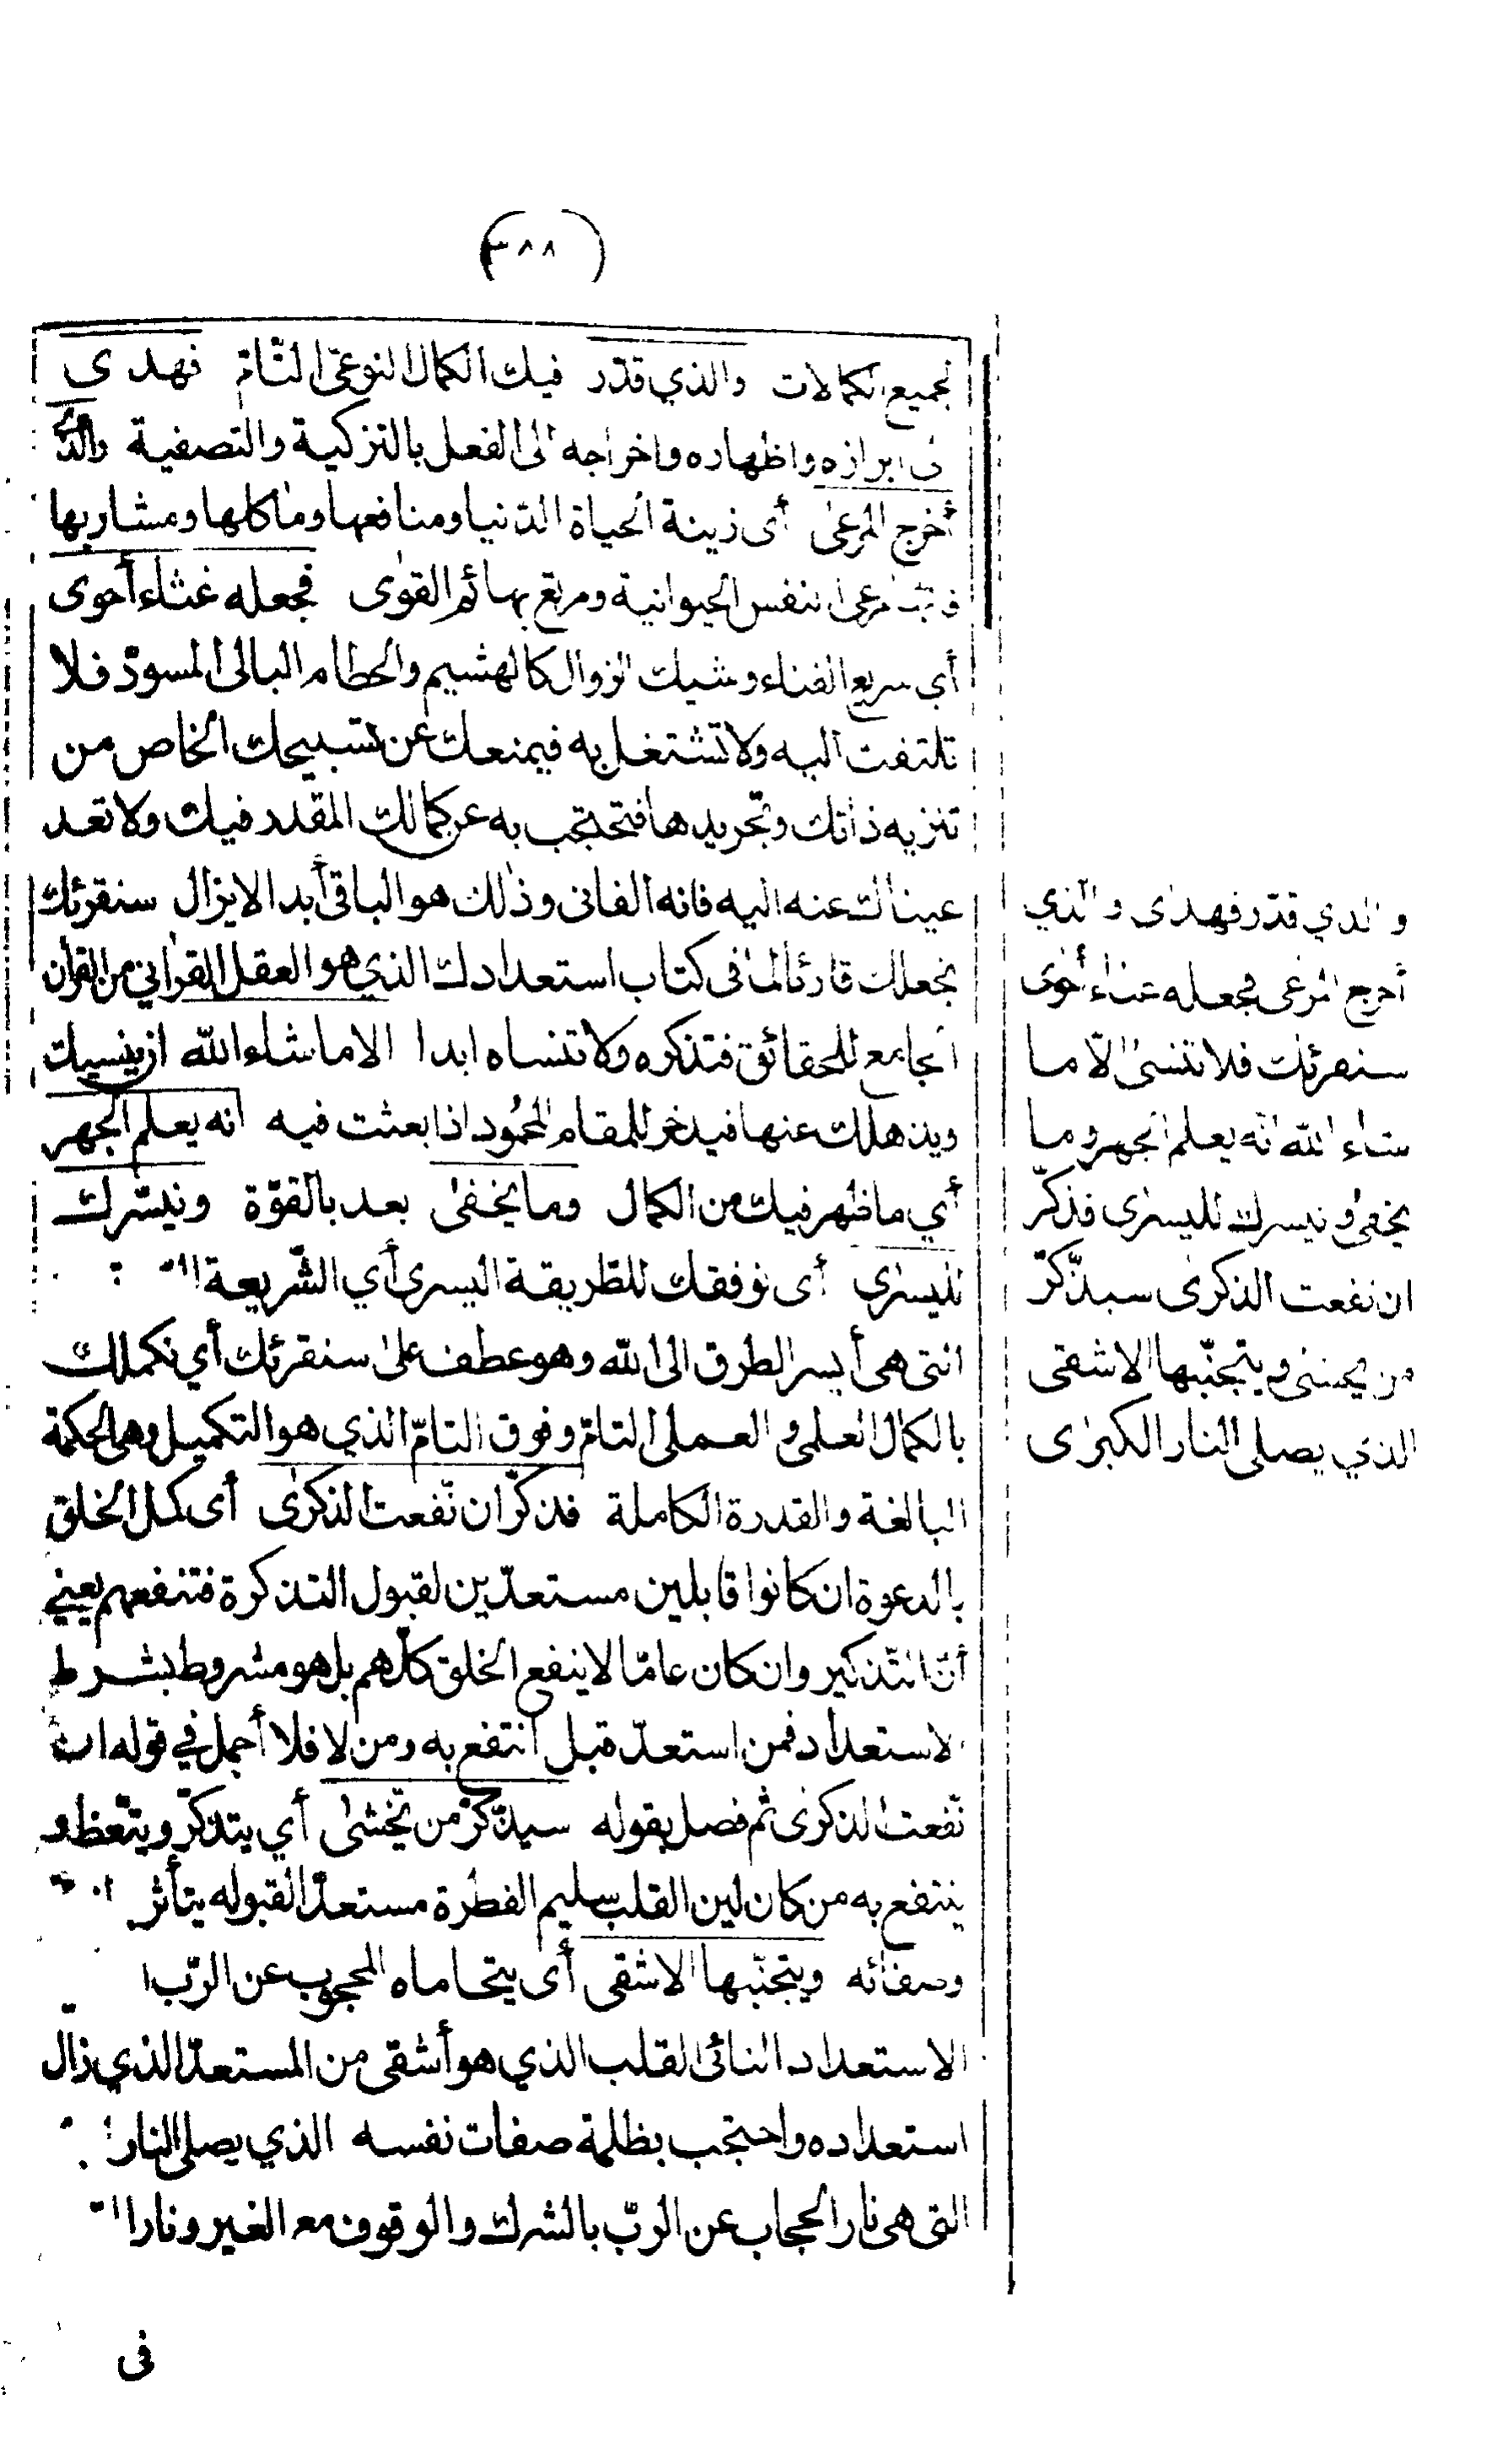 (٣٨٨)
لجميع الكمالات والذي قدّر فيك الكمال النوعيّ التّامّ فهدى
الى ابرازه واظهاره واخراجه الى الفعل بالتزكية والتصفية والذي
أخرج المرعى أى زينة الحياة الدّنيا ومنافعها ومآكلها ومشاربها
مرعى النفس الحيوانية ومرتع بهائم القوى فجعله غثاء أحوى
أي سريع الفناء وشيك الزوال كالهشيم والحطام البالى المسودّ فلا
تلتفت اليه ولا تشتغل به فيمنعك عن تسبيحك الخاص من
تنزيه ذاتك وتجريدها فتحتجب به عن كمالك المقدر فيك ولا تعد
عيناك عنه اليه فانه الفانى وذلك هو الباقى أبدا لايزال سنقرئك
نجعلك قارئا لما فى كتاب استعدادك الذي هو العقل القرآني من القرآن
الجامع للحقائق فتذكره ولا تنساه ابدا الا ماشاء الله ان ينسيك
ويذهلك عنها فيدخر للمقام المحمود اذا بعثت فيه انه يعلم الجهر
أي ما ظهر فيك من الكمال وما يخفى بعد بالقوّة ونيسّرك
لليسرى أى نوفقك للطّريقة اليسرى أي الشّريعة
التى هى أيسر الطرق الى الله وهو عطف على سنقرئك أي نكملك
بالكمال العلمى والعملى التامّ وفوق التامّ الذي هو التكميل وهى الحكمة
البالغة والقدرة الكاملة فذكّر ان نفعت الذكرى أى كمل الخلق
بالدعوة ان كانوا قابلين مستعدّين لقبول التذكرة فتنفعهم يعني
أنّ التّذكير وان كان عامّا لا ينفع الخلق كلّهم بل هو مشروط بشرط
الاستعداد فمن استعدّ قبل انتفع به ومن لا فلا أجمل في قوله ان
نفعت الذكرى ثم فصل بقوله سيذّكّر من يخشى أي يتذكّر ويتّعظ و
ينتفع به من كان لين القلب سليم الفطرة مستعدّا لقبوله يتأثر
وصفائه ويتجنّبها الاشقى أى يتحاماه المحجوب عن الرّب
الاستعداد النائى القلب الذي هو أشقى من المستعدّ الذي زال
استعداده واحتجب بظلمة صفات نفسه الذي يصلى النار
التى هى نار الحجاب عن الربّ بالشرك والوقوف مع الغير ونار
فى
والذي قدّر فهدى والذي
أخرج المرعى فجعله غثاء أحوى
سنقرئك فلا تنسى الاّ ما
شاء الله انّه يعلم الجهر وما
يخفى ونيسرك لليسرى فذكّر
ان نفعت الذكرى سيذّكّر
من يخشى ويتجنّبها الاشقى
الذي يصلى النار الكبرى